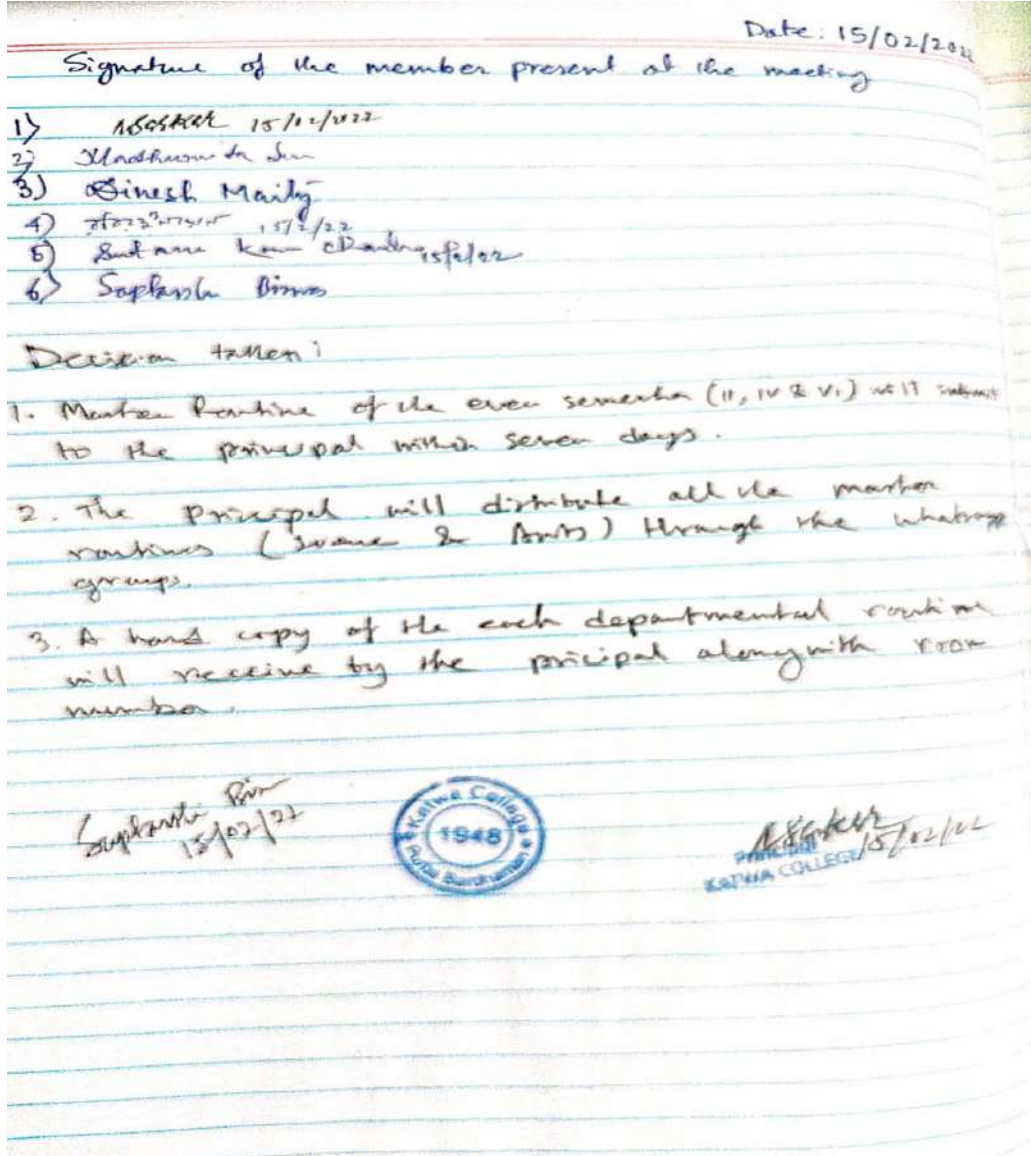 Date: 15/02/2022
Signature of the member present at the meeting
1) 15/02/2022
2) Madhumita Sen
3) Dinesh Maity
4) 15/2/22
5) 15/2/22
6) Saptarshi Biswas
Decision taken:
1. Master Routine of the even semester (II, IV & VI) will submit
to the principal within seven days.
2. The Principal will distribute all the master
routines (Science & Arts) through the whatsapp
groups.
3. A hard copy of the each departmental routine
will receive by the pricipal alongwith room
number.
Saptarshi
15/02/22
Katwa College
1948
Purba Bardhaman
15/02/22
Principal
KATWA COLLEGE